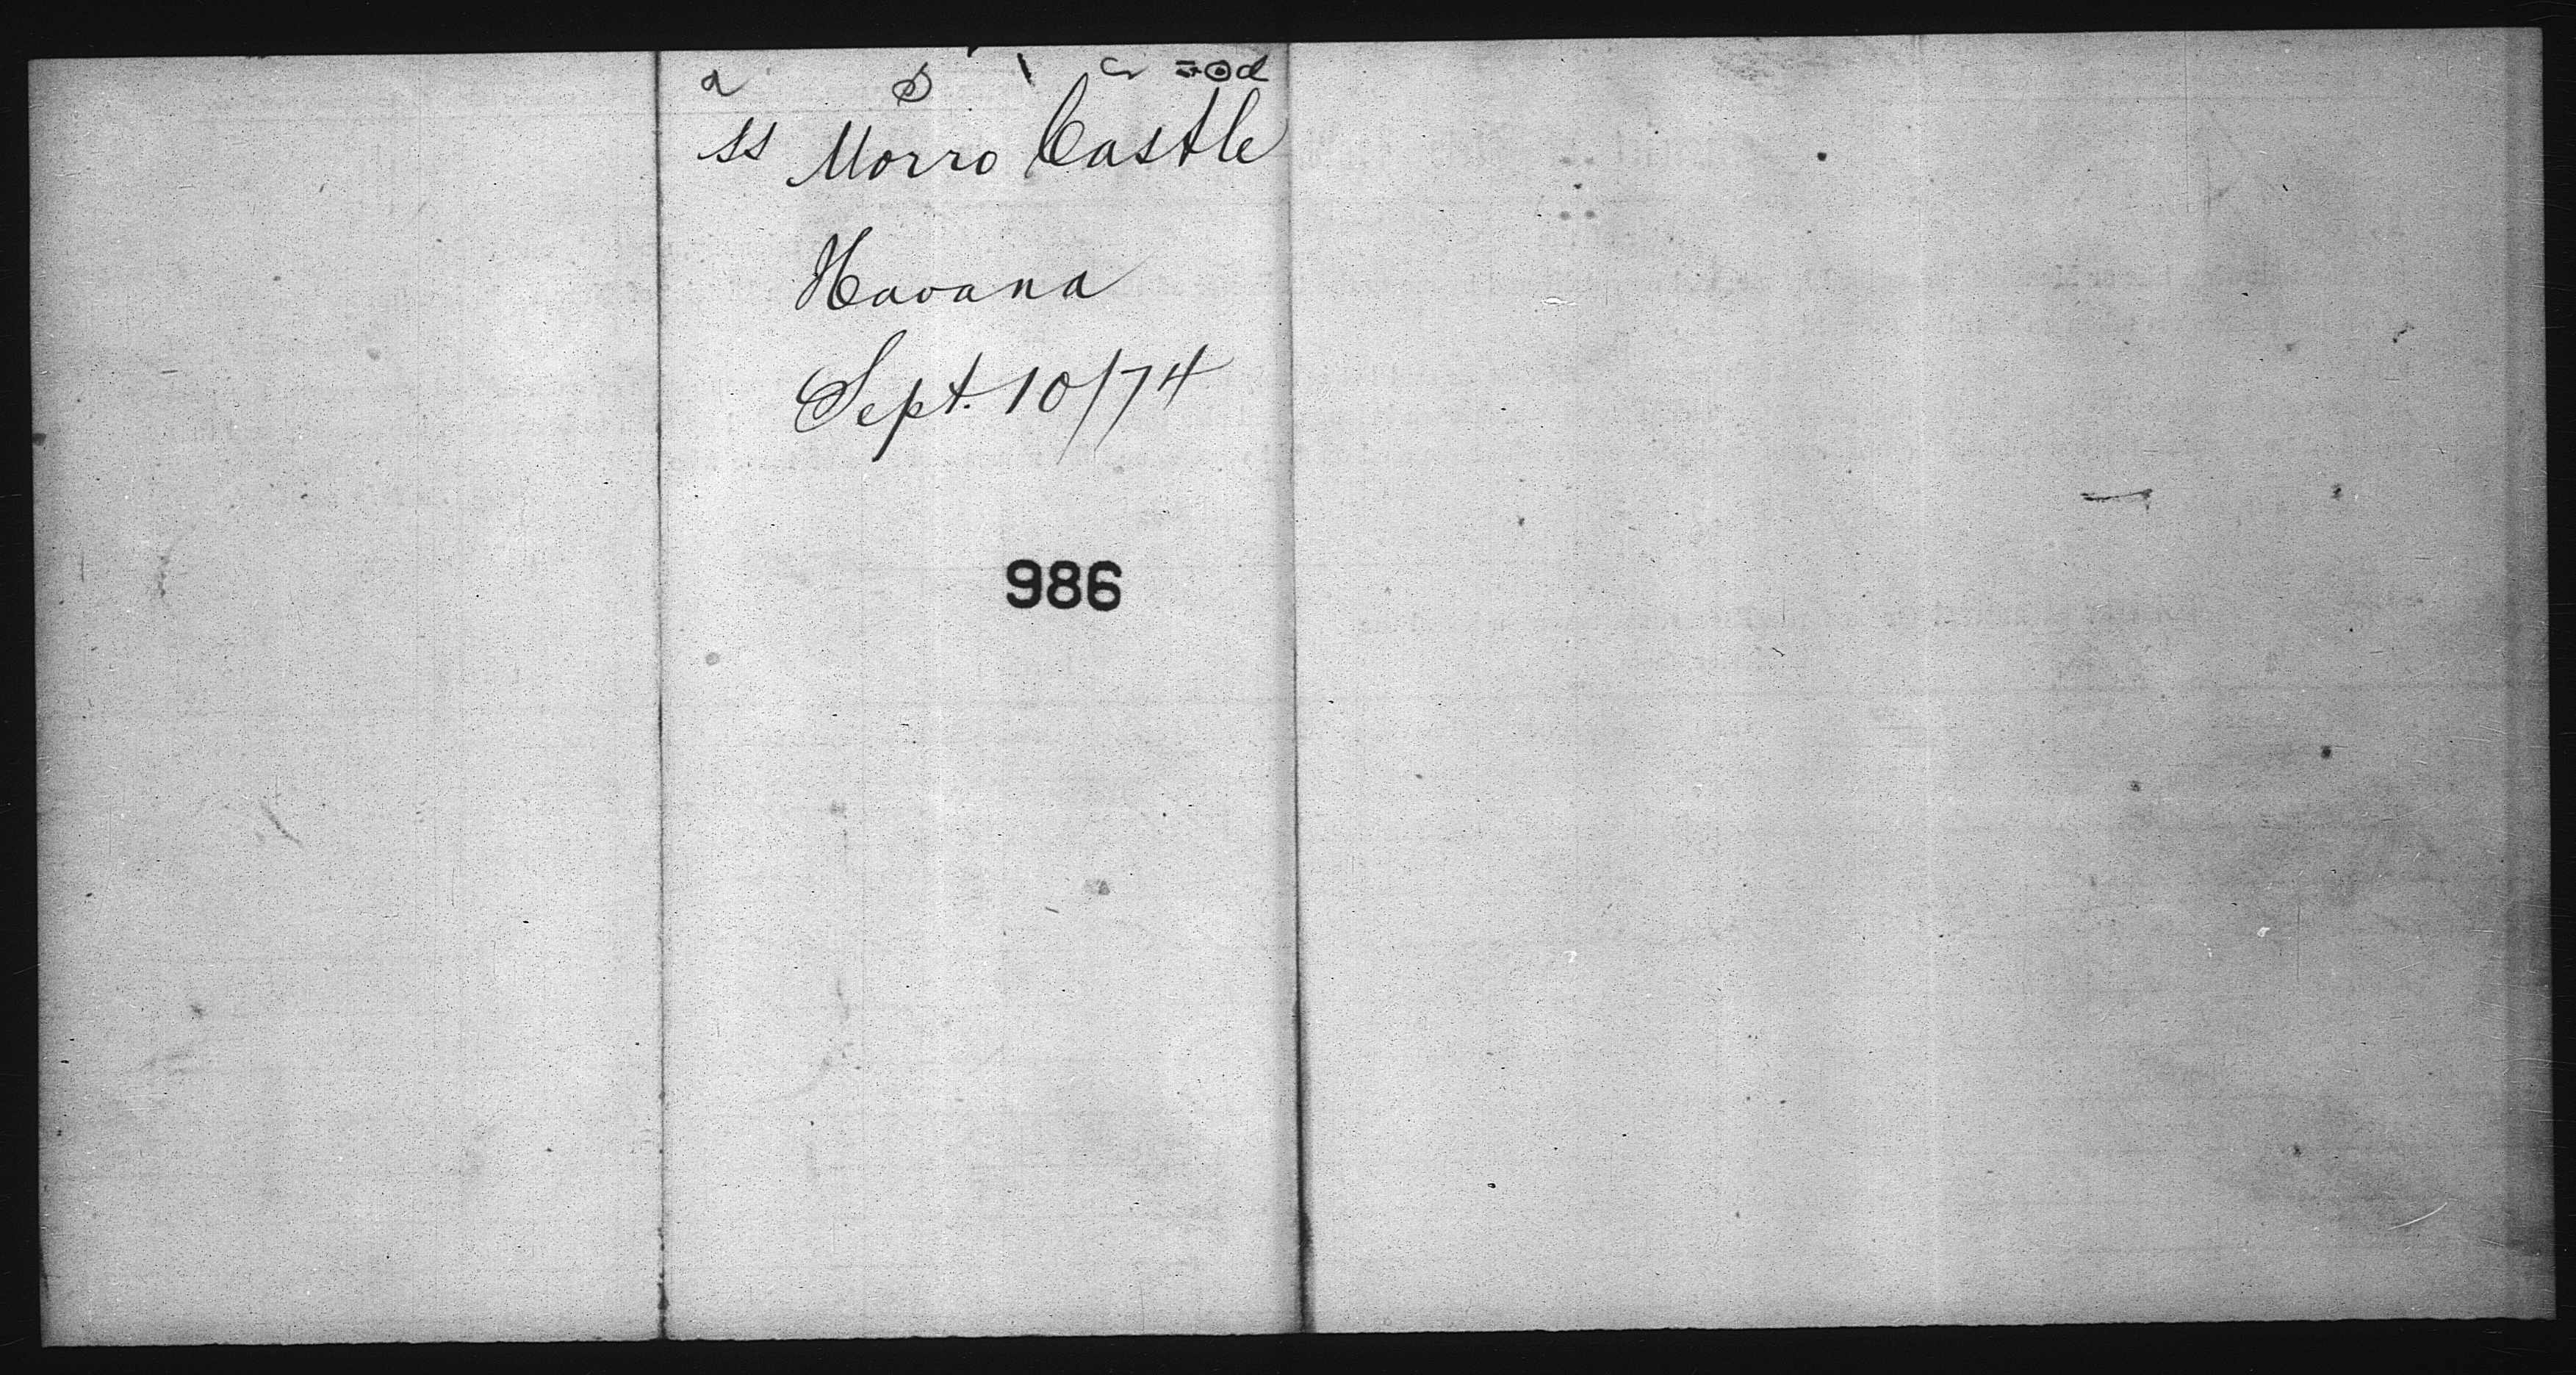 SS Morro Castle
Havana
Sept. 10/74
986